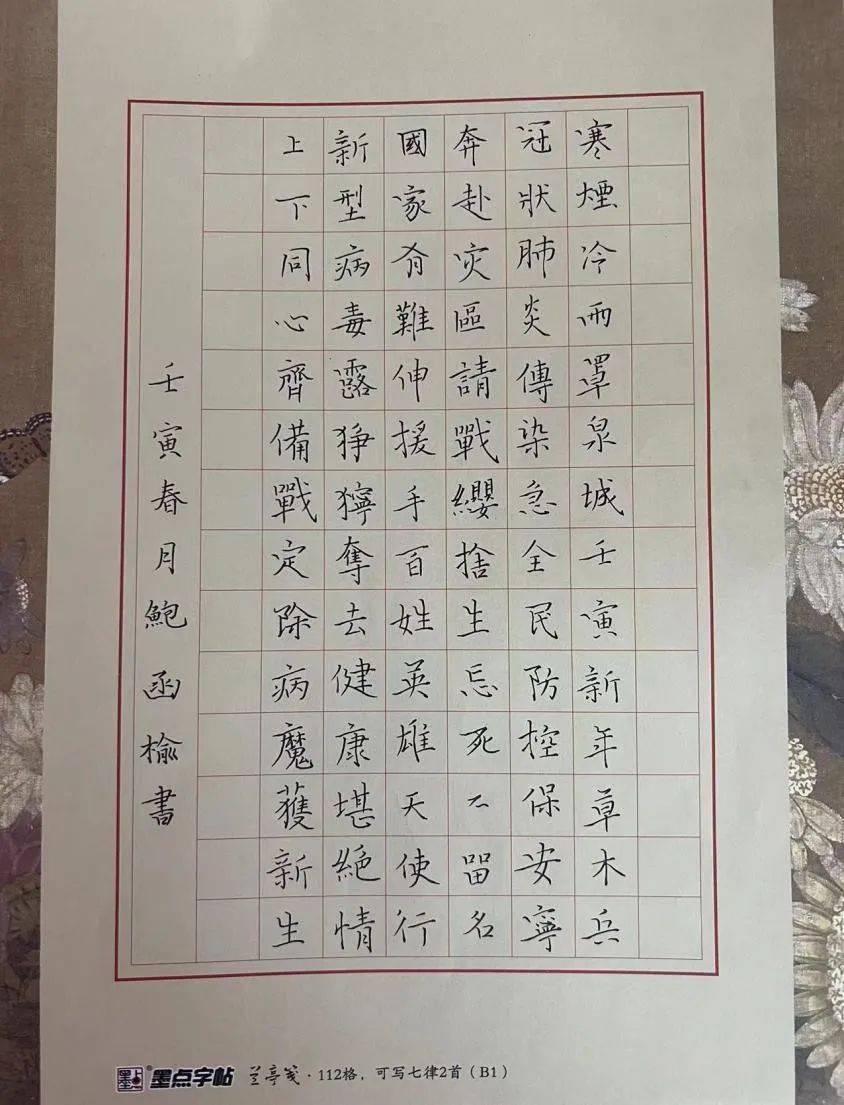 寒煙冷雨罩泉城壬寅新年草木兵
冠狀肺炎傳染急全民防控保安寧
奔赴灾區請戰纓捨生忘死不留名
國家有難伸援手百姓英雄天使行
新型病毒露猙獰奪去健康堪絕情
上下同心齊備戰定除病魔獲新生
壬寅春月鮑函榆書
墨点字帖 兰亭笺·112格，可写七律2首（B1）